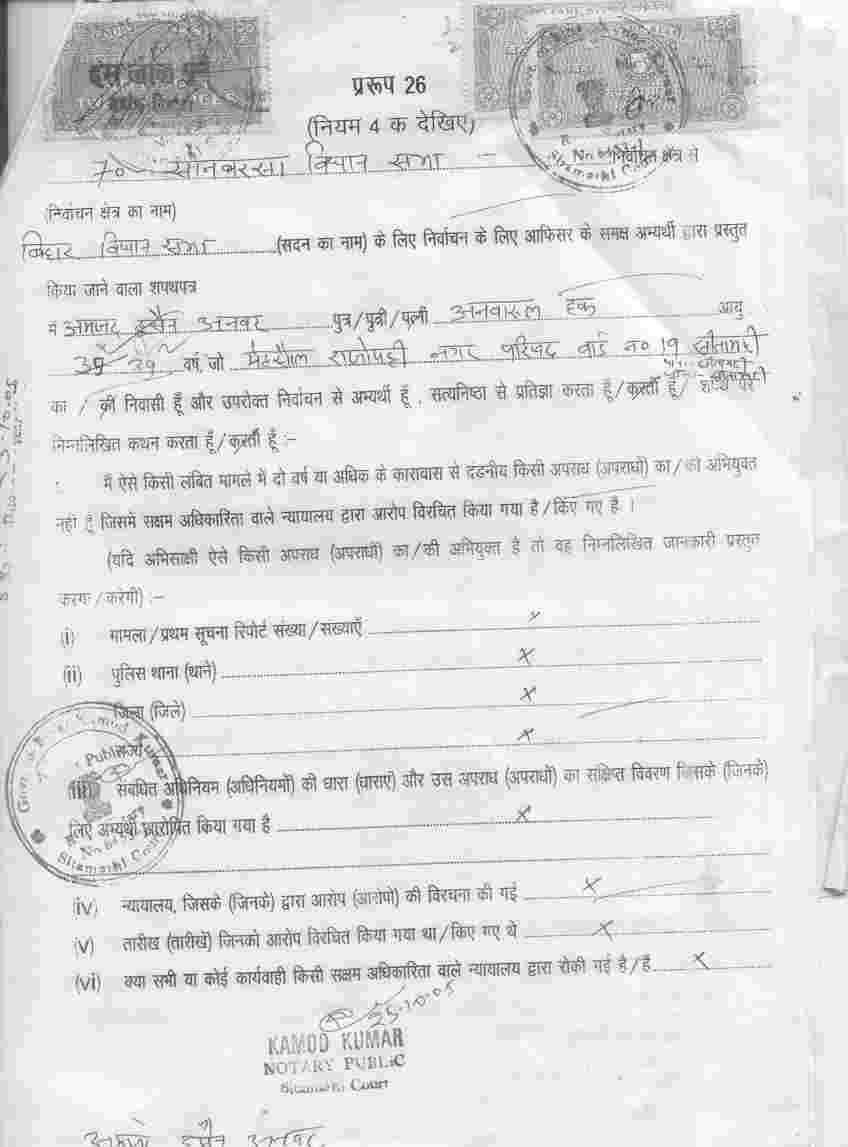 प्ररूप 26
(नियम 4 क देखिए)
70 सोनबरसा विधान सभा निर्वाचन क्षेत्र से
(निर्वाचन क्षेत्र का नाम)
बिहार विधान सभा (सदन का नाम) के लिए निर्वाचन के लिए आफिसर के समक्ष अभ्यर्थी द्वारा प्रस्तुत
किया जाने वाला शपथपत्र
मैं अमजद हुसैन अनवर पुत्र/पुत्री/पत्नी अनवारूल हक आयु
39 वर्ष, जो राजोपट्टी नगर परिषद वार्ड no 19 सीतामढ़ी
का / की निवासी हूँ और उपरोक्त निर्वाचन से अभ्यर्थी हूँ , सत्यनिष्ठा से प्रतिज्ञा करता हूँ/करती हूँ/ शपथ पर
निम्नलिखित कथन करता हूँ/करती हूँ :-
मैं ऐसे किसी लंबित मामले में दो वर्ष या अधिक के कारावास से दंडनीय किसी अपराध (अपराधों) का/की अभियुक्त
नहीं हूँ जिसमें सक्षम अधिकारिता वाले न्यायालय द्वारा आरोप विरचित किया गया है/किए गए है ।
(यदि अभिसाक्षी ऐसे किसी अपराध (अपराधों) का/की अभियुक्त है तो वह निम्नलिखित जानकारी प्रस्तुत
करेगा/करेगी) :-
(i) मामला/प्रथम सूचना रिपोर्ट संख्या/संख्याएँ x
(ii) पुलिस थाना (थाने) x
जिला (जिले) x
x
(iii) संबंधित अधिनियम (अधिनियमों) की धारा (धाराएं) और उस अपराध (अपराधों) का संक्षिप्त विवरण जिसके (जिनके)
लिए अभ्यर्थी आरोपित किया गया है x
(iv) न्यायालय, जिसके (जिनके) द्वारा आरोप (आरोपों) की विरचना की गई x
(v) तारीख (तारीखें) जिनको आरोप विरचित किया गया था/किए गए थे x
(vi) क्या सभी या कोई कार्यवाही किसी सक्षम अधिकारिता वाले न्यायालय द्वारा रोकी गई है/हैं x
25-10-05
KAMOD KUMAR
NOTARY PUBLIC
Sitamarhi Court
हुसैन अनवर